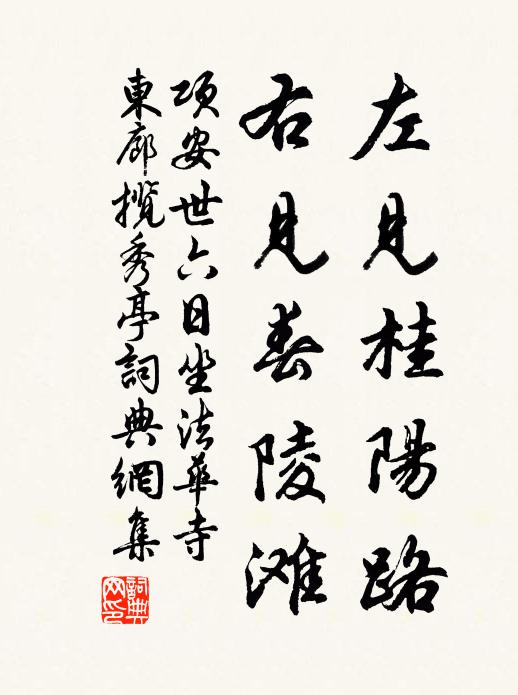 左見桂陽路
右見舂陵滩
項安世六日坐法華寺
東廊攬秀亭詞典網集
詞典
网印